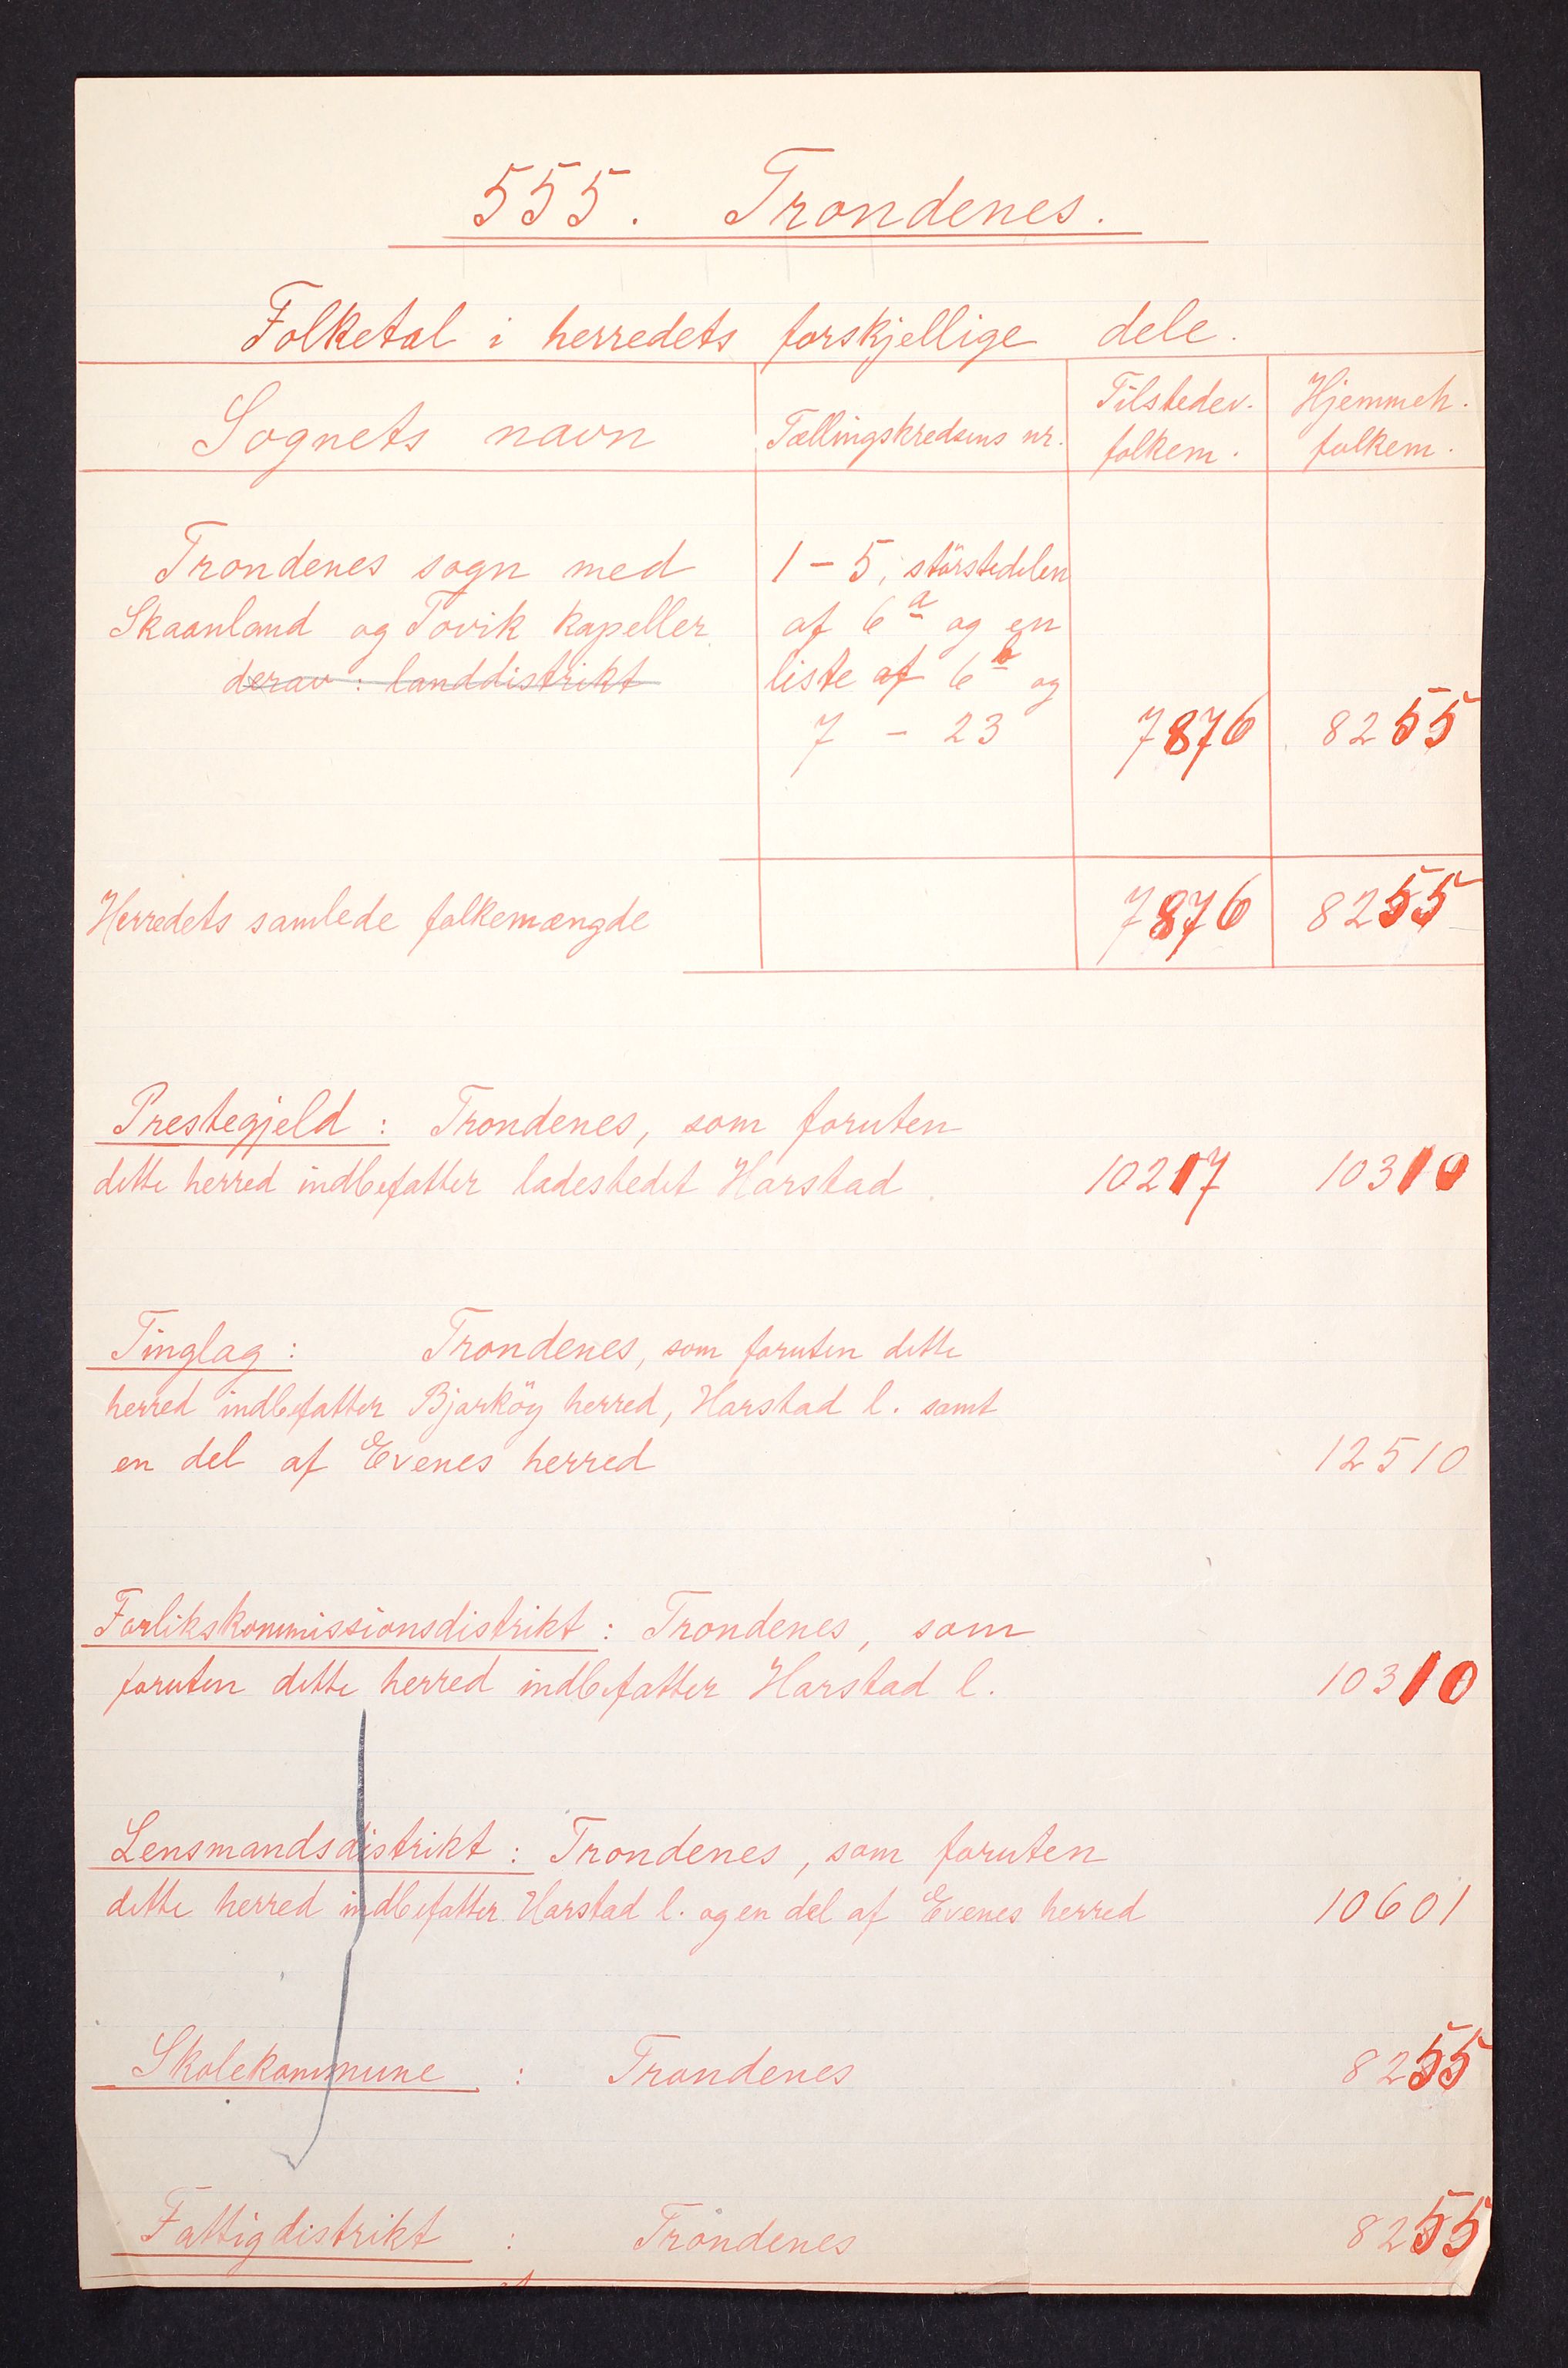 555. Trondenes.
Folketal i herredets forskjellige dele.
Sognets navn Tællingskredsens nr. Tilstedev. folkem. Hjemmeh. folkem.
Trondenes sogn med 1 - 5, störstedelen
Skaanland og Tovik kapeller af 6a og en
derav: landdistrikt liste af 6b og
7 - 23 7876 8255
Herredets samlede folkemængde 7876 8255
Prestegjeld: Trondenes, som foruten
dette herred indbefatter ladestedet Harstad. 10217 10310
Tinglag: Trondenes, som foruten dette
herred indbefatter Bjarköy herred, Harstad l. samt
en del af Evenes herred 12510
Forlikskommissionsdistrikt: Trondenes, som
foruten dette herred indbefatter Harstad l. 10310
Lensmandsdistrikt: Trondenes, som foruten
dette herred indbefatter Harstad l. og en del af Evenes herred 10601
Skolekommune : Trondenes 8255
Fattigdistrikt : Trondenes 8255